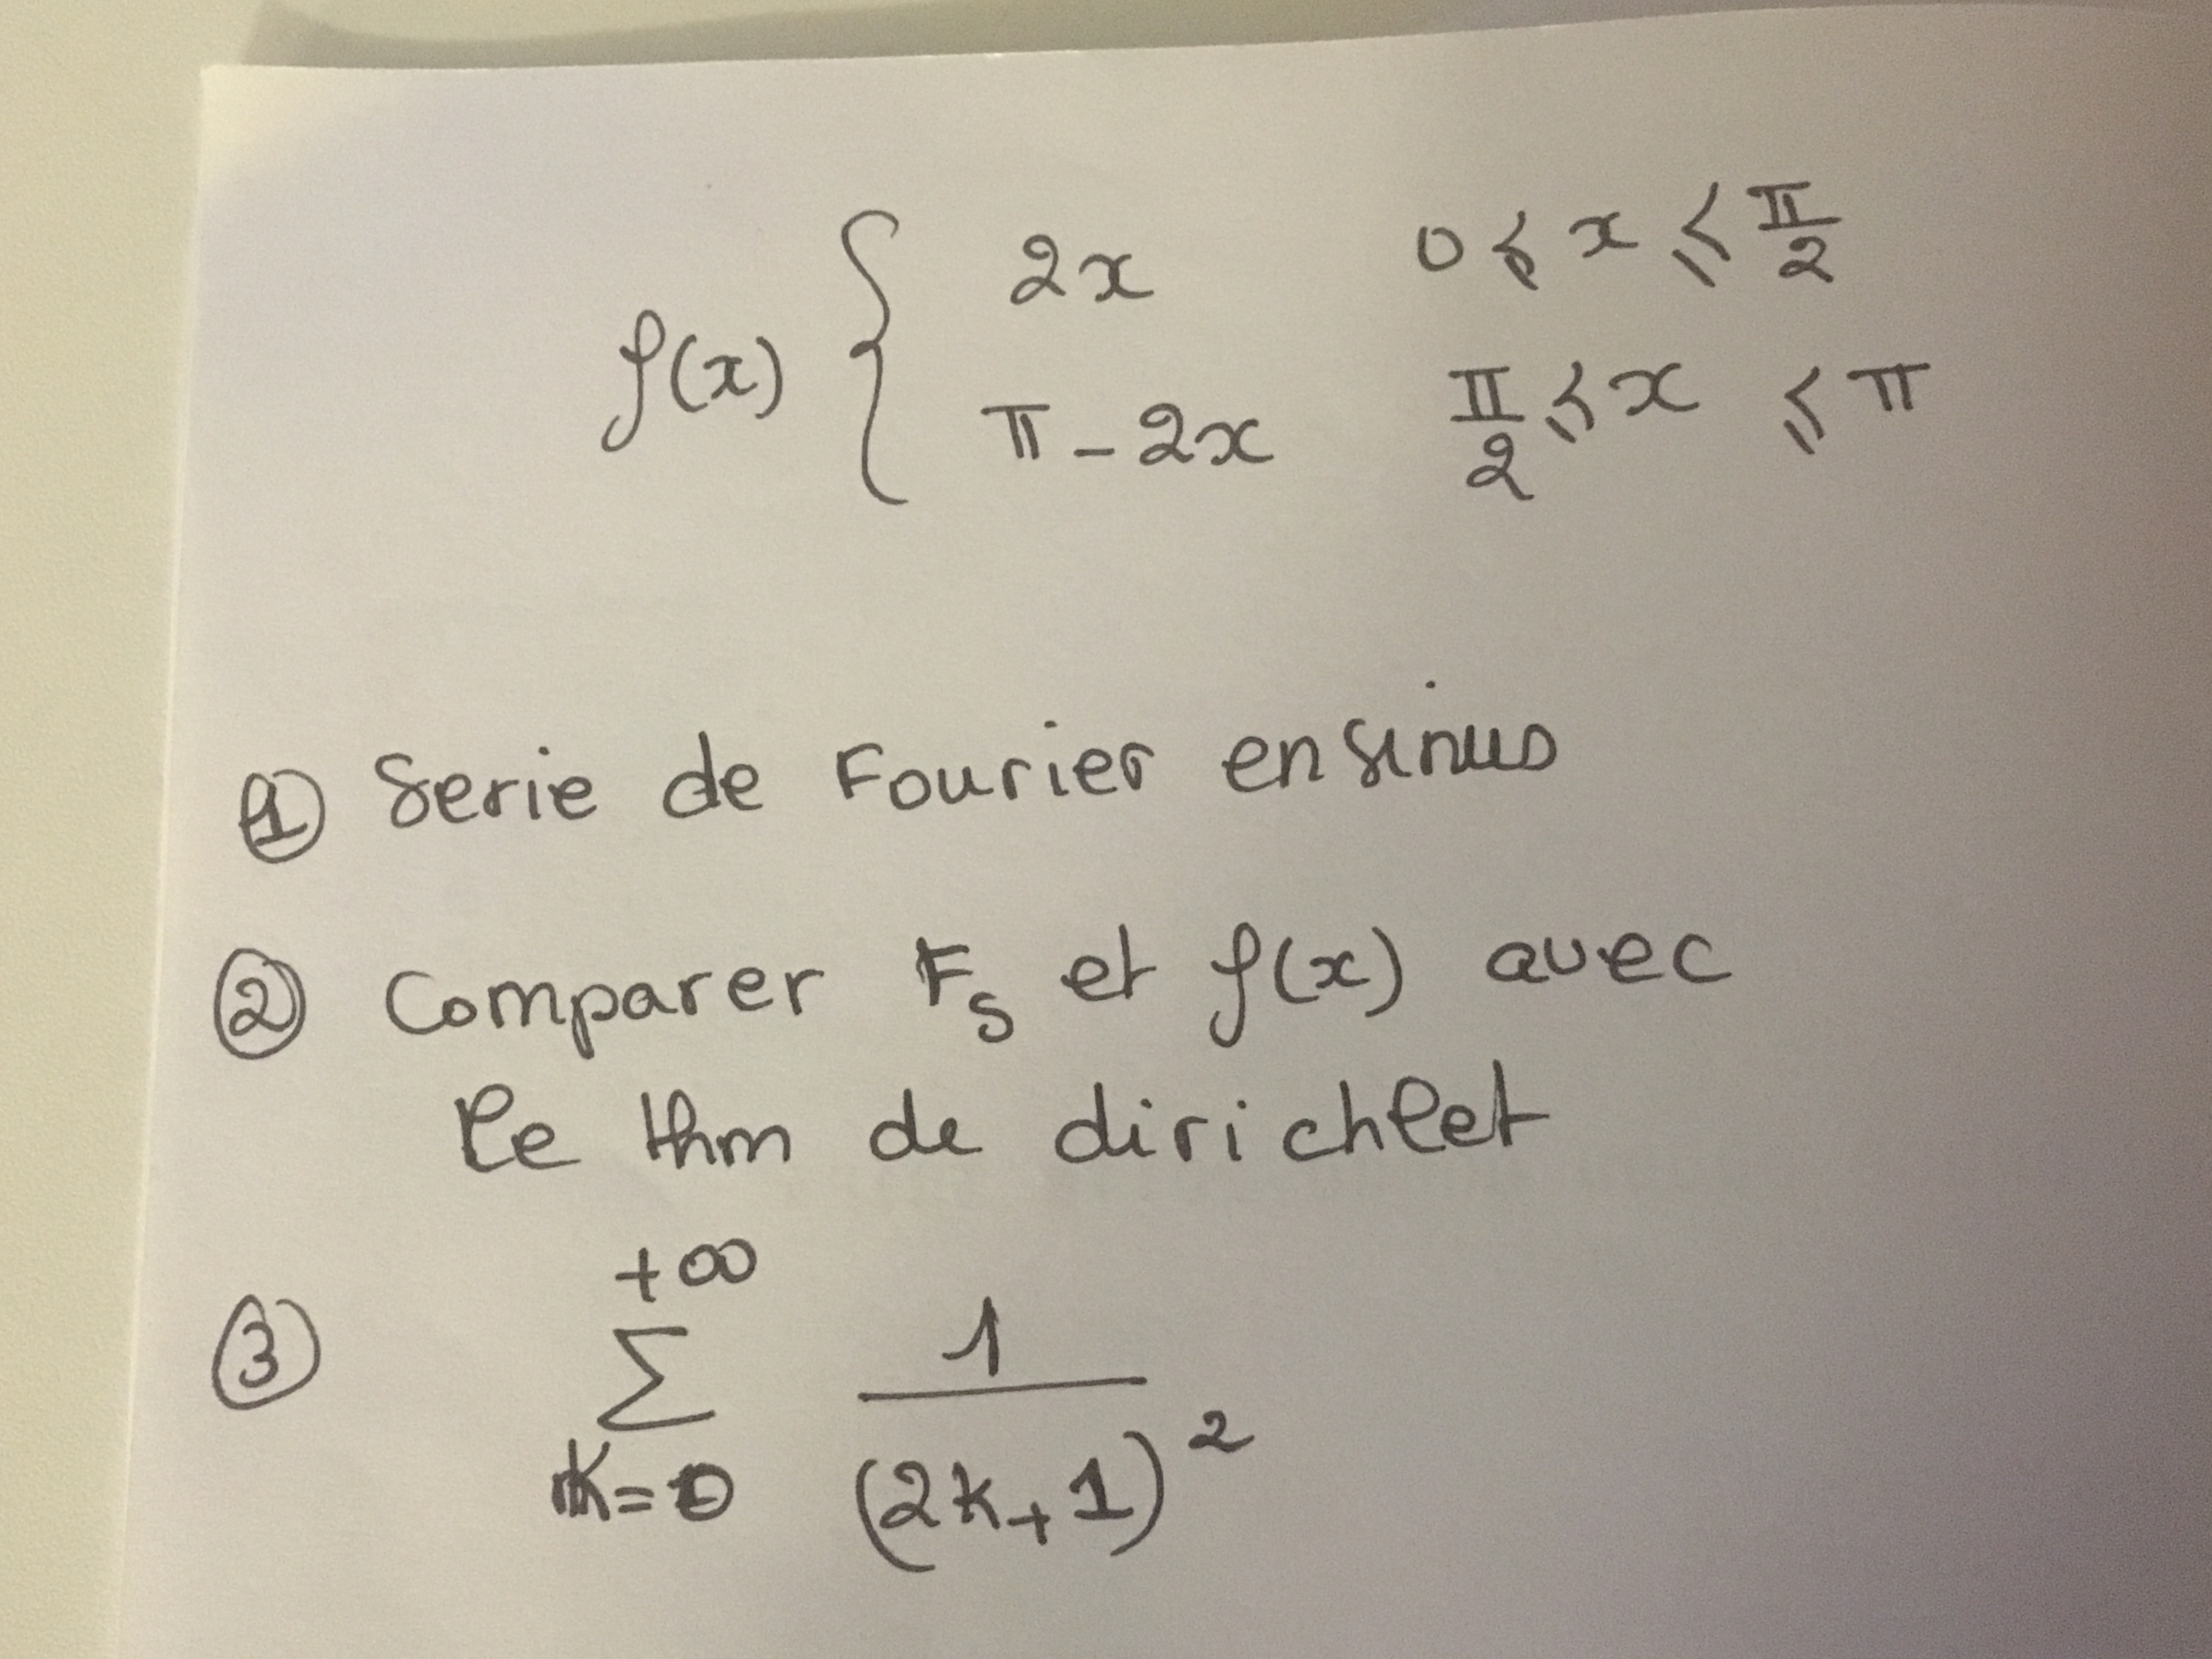 f(x) { 2x 0 ≤ x ≤ π/2
π - 2x π/2 ≤ x ≤ π
① Serie de Fourier en sinus
② Comparer F_s et f(x) avec
le thm de dirichlet
③ +∞ Σ K=0 1/(2k+1)²